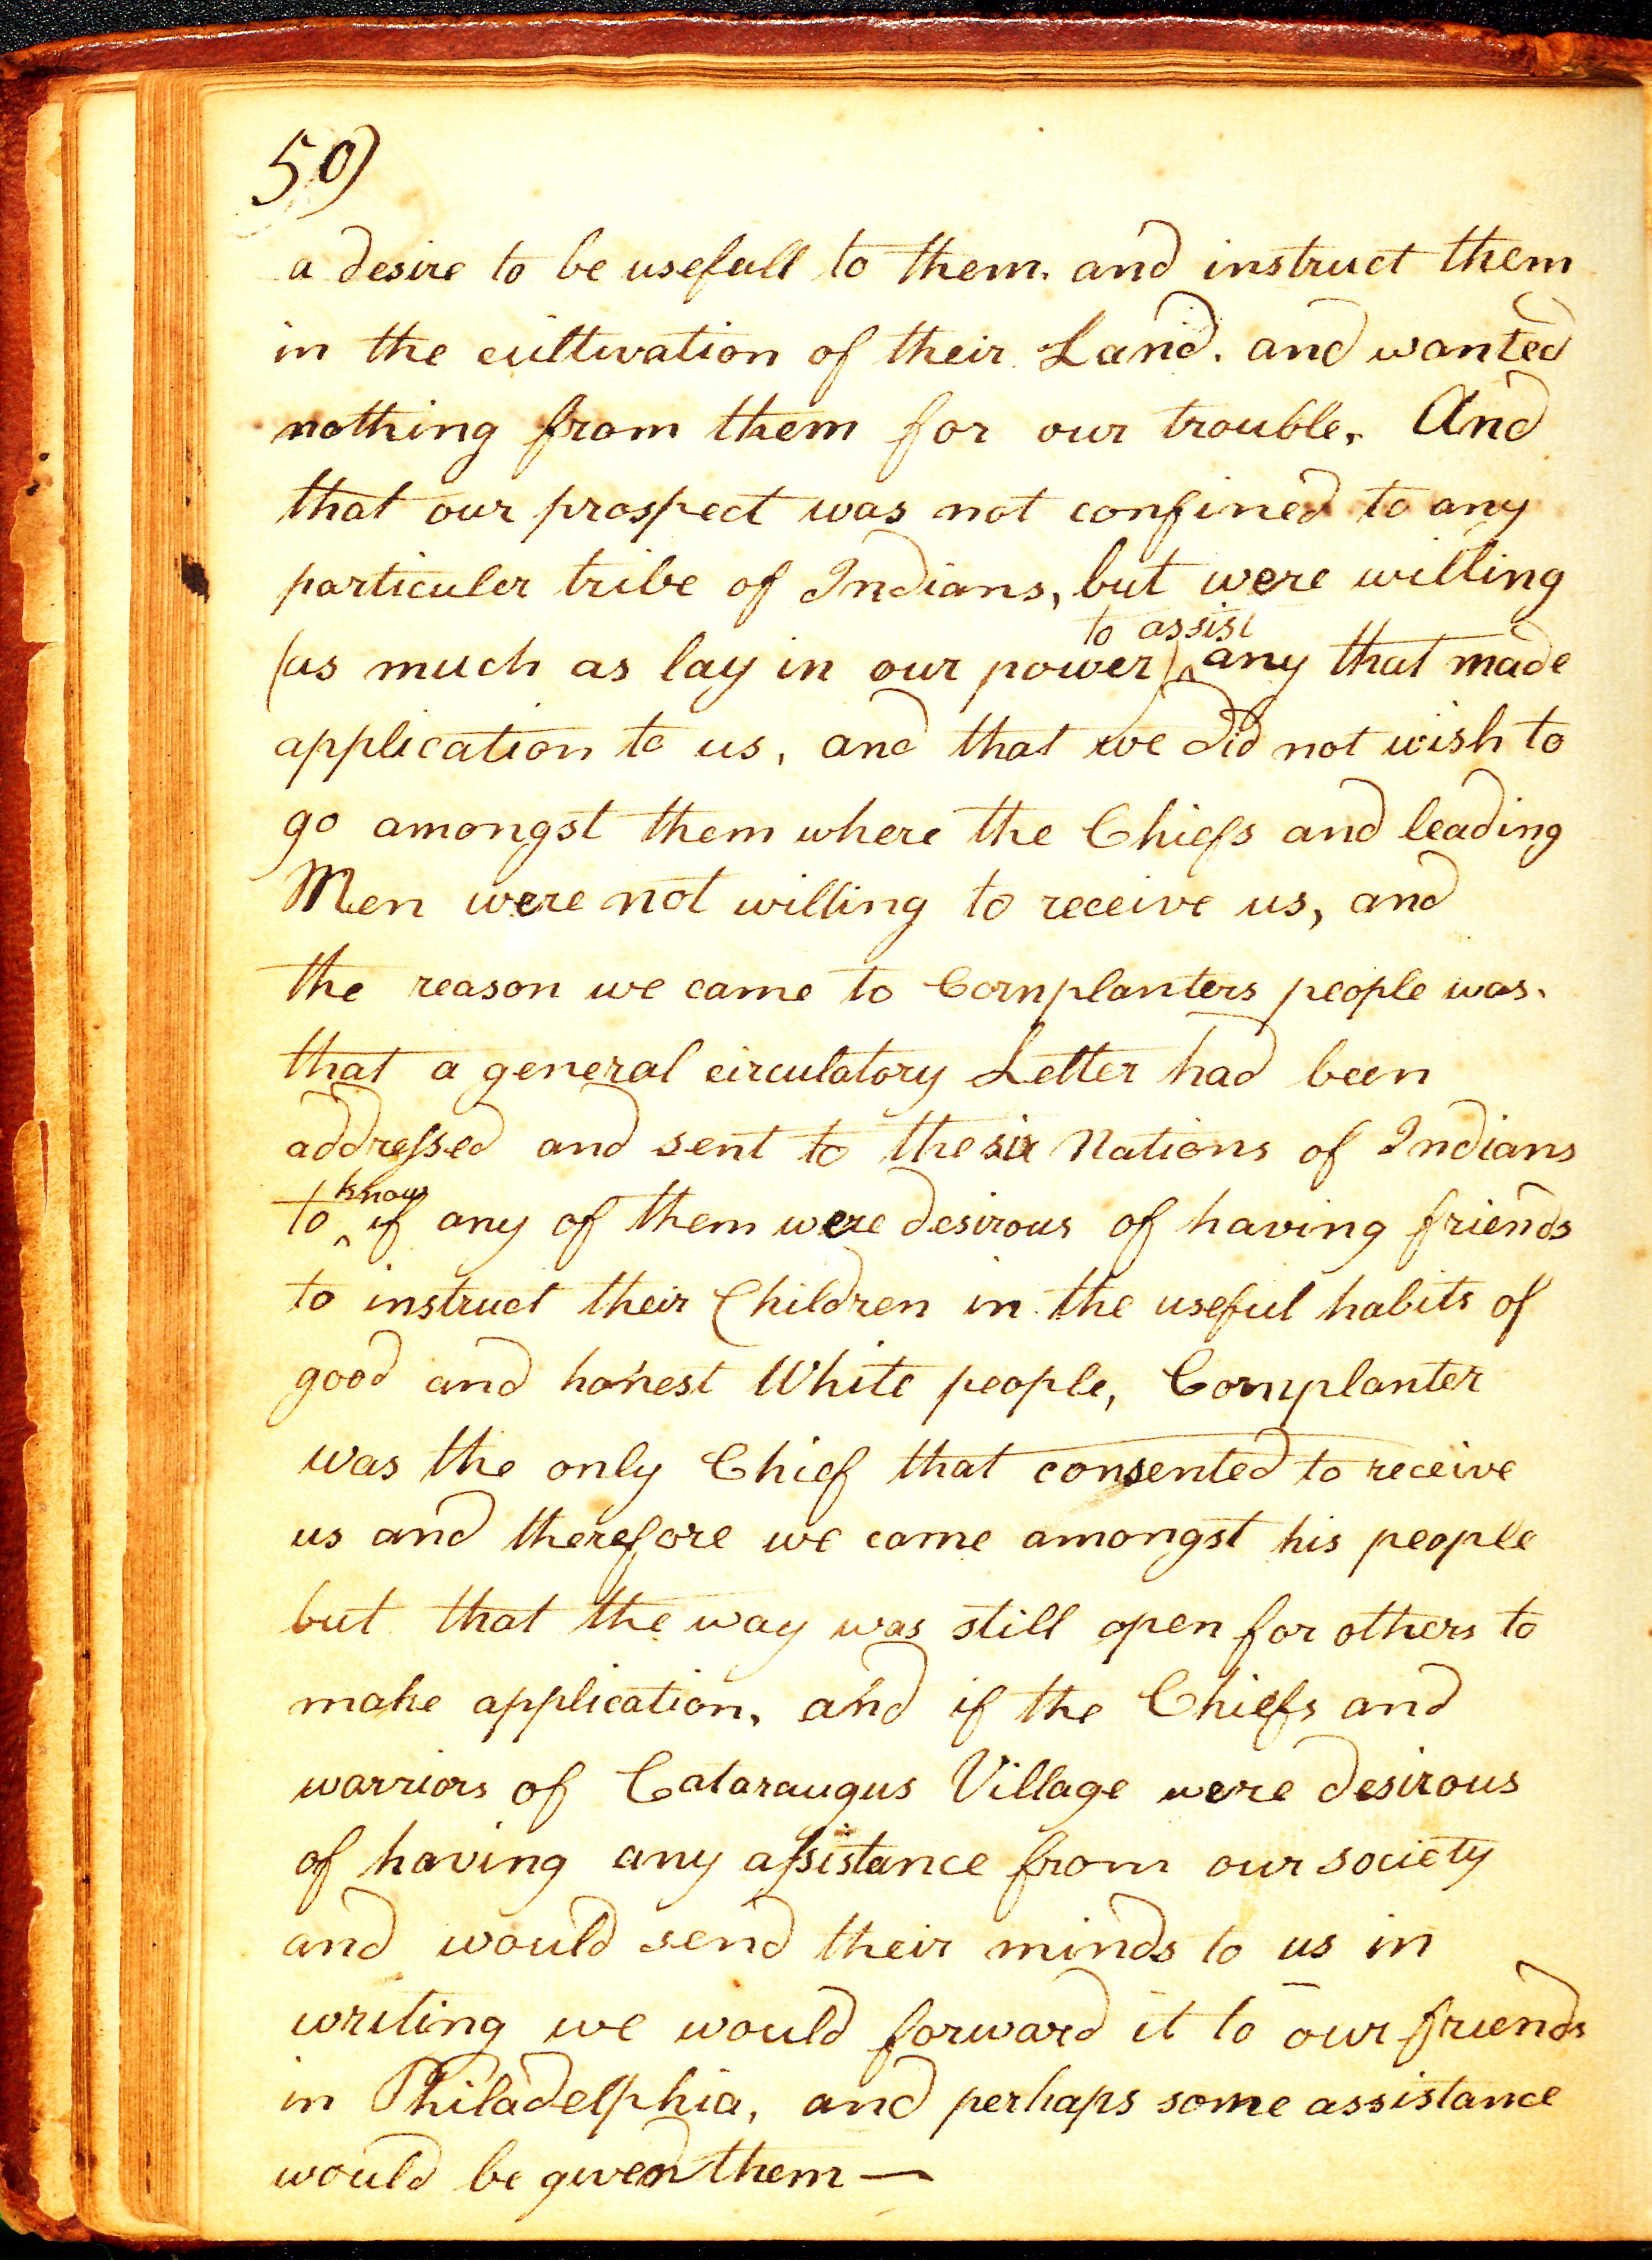 50)
a desire to be usefull to them. and instruct them
in the cultivation of their Land. and wanted
nothing from them for our trouble. And
that our prospect was not confined to any
particuler tribe of Indians, but were willing
to assist
(as much as lay in our power)^ any that made
application to us, and that we did not wish to
go amongst them where the Chiefs and leading
Men were not willing to receive us, and
the reason we came to Cornplanters people was.
that a general circulatory Letter had been
addressed and sent to the six Nations of Indians
know
to ^ if any of them were desirous of having friends
to instruct their Children in the useful habits of
good and honest White people, Cornplanter
was the only Chief that consented to receive
us and therefore we came amongst his people
but that the way was still open for others to
make application, and if the Chiefs and
warriors of Cataraugus Village were desirous
of having any assistance from our society
and would send their minds to us in
writing we would forward it to our friends
in Philadelphia, and perhaps some assistance
would be given them —